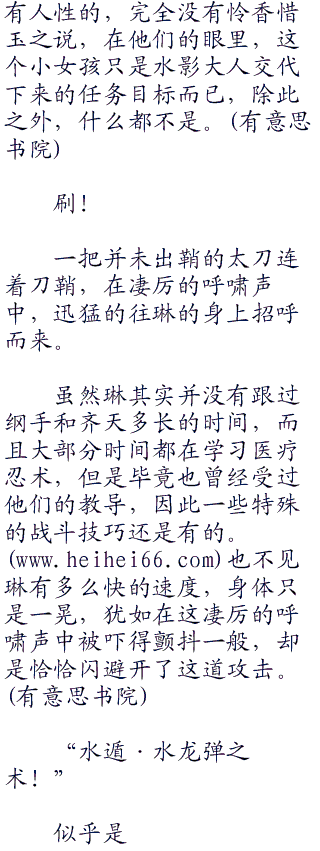 有人性的，完全没有怜香惜
玉之说，在他们的眼里，这
个小女孩只是水影大人交代
下来的任务目标而已，除此
之外，什么都不是。(有意思
书院)
刷！
一把并未出鞘的太刀连
着刀鞘，在凄厉的呼啸声
中，迅猛的往琳的身上招呼
而来。
虽然琳其实并没有跟过
纲手和齐天多长的时间，而
且大部分时间都在学习医疗
忍术，但是毕竟也曾经受过
他们的教导，因此一些特殊
的战斗技巧还是有的。
(www.heihei66.com)也不见
琳有多么快的速度，身体只
是一晃，犹如在这凄厉的呼
啸声中被吓得颤抖一般，却
是恰恰闪避开了这道攻击。
(有意思书院)
“水遁·水龙弹之
术！”
似乎是